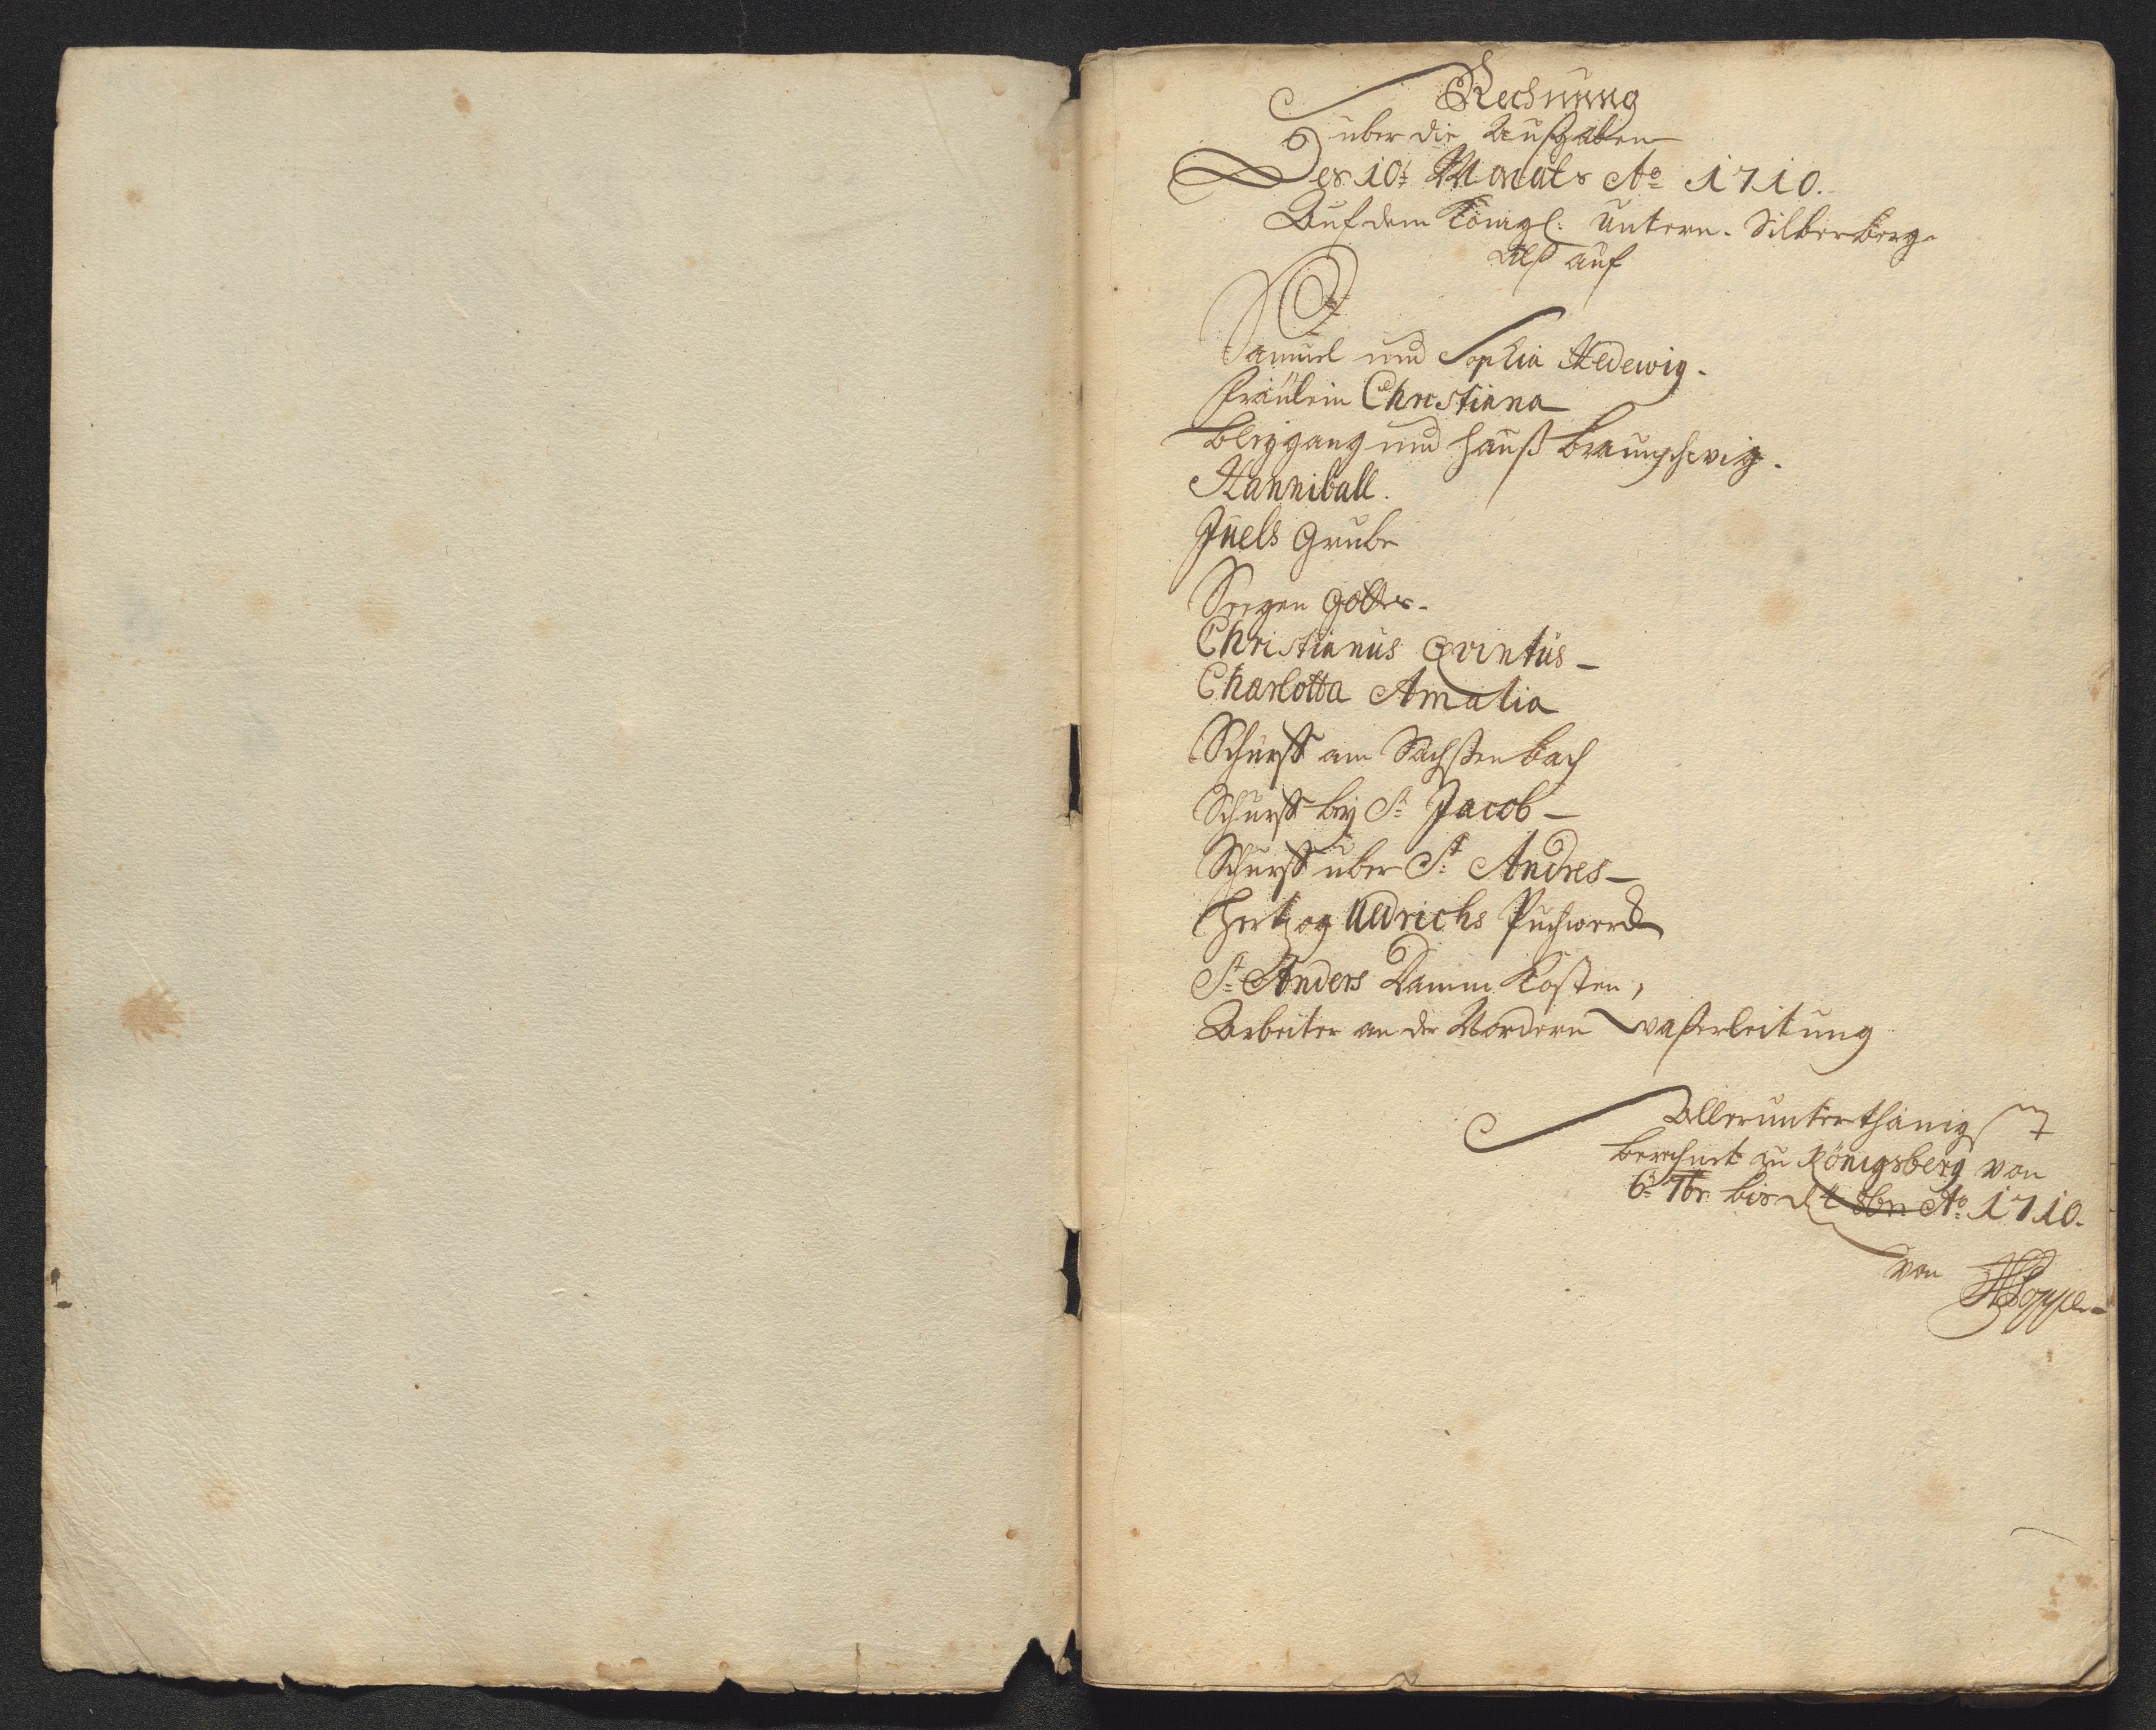 Rechnung
über die Außgaben
Des 10t Monats Ao 1710.
Auf dem Königl: Untern-Silberberge
Alß auf
Samuel und Sophia Hedewig.
Fräulein Christiana
Bleygang und Hauß Braunschwig.
Hanniball.
Juels Grube
Seegen Gottes.
Christianus Qvintus
Charlotta Amalia
Schurff am Sachßen bach
Schurff bey St Jacob
Schurff über St: Andres
Hertzog Uldrichs Puchwerck
St Anders Damm Kosten,
Arbeiter an der Vordern Waßerleitung
Allerunterthänigst
berechnet zu Königsberg von
6t 7br. bis d 4t 8br. Ao 1710.
von